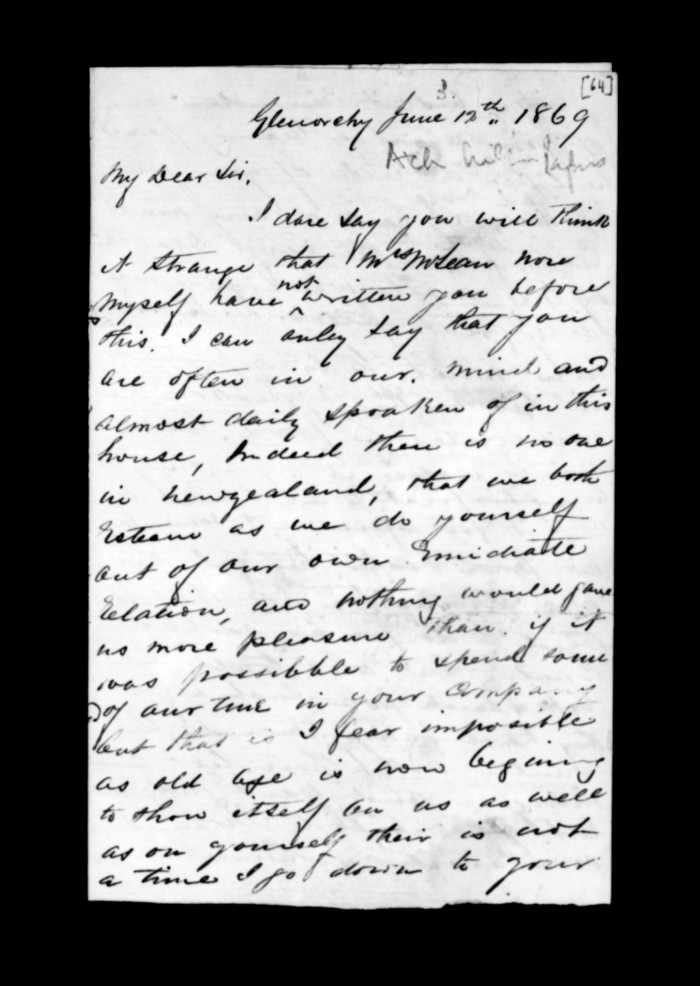 3.
[64]
Glenorchy June 12th 1869
Arch
My Dear Sir,
I dare say you will think
it strange that Mrs McLean nore
myself have not written you before
this. I can onley say that you
are often in our. mind and
almost daily spoaken of in this
house, Indeed there is no one
in newzealand, that we both
Esteem as we do yourself
out of our own Emidiatle
relation, and nothing would gave
us more pleasure than if it
was possibble to spend some
of our time in your Company
but that is I fear imposible
as old age is now begining
to show itself on us as well
as on yourself their is not
a time I go down to your